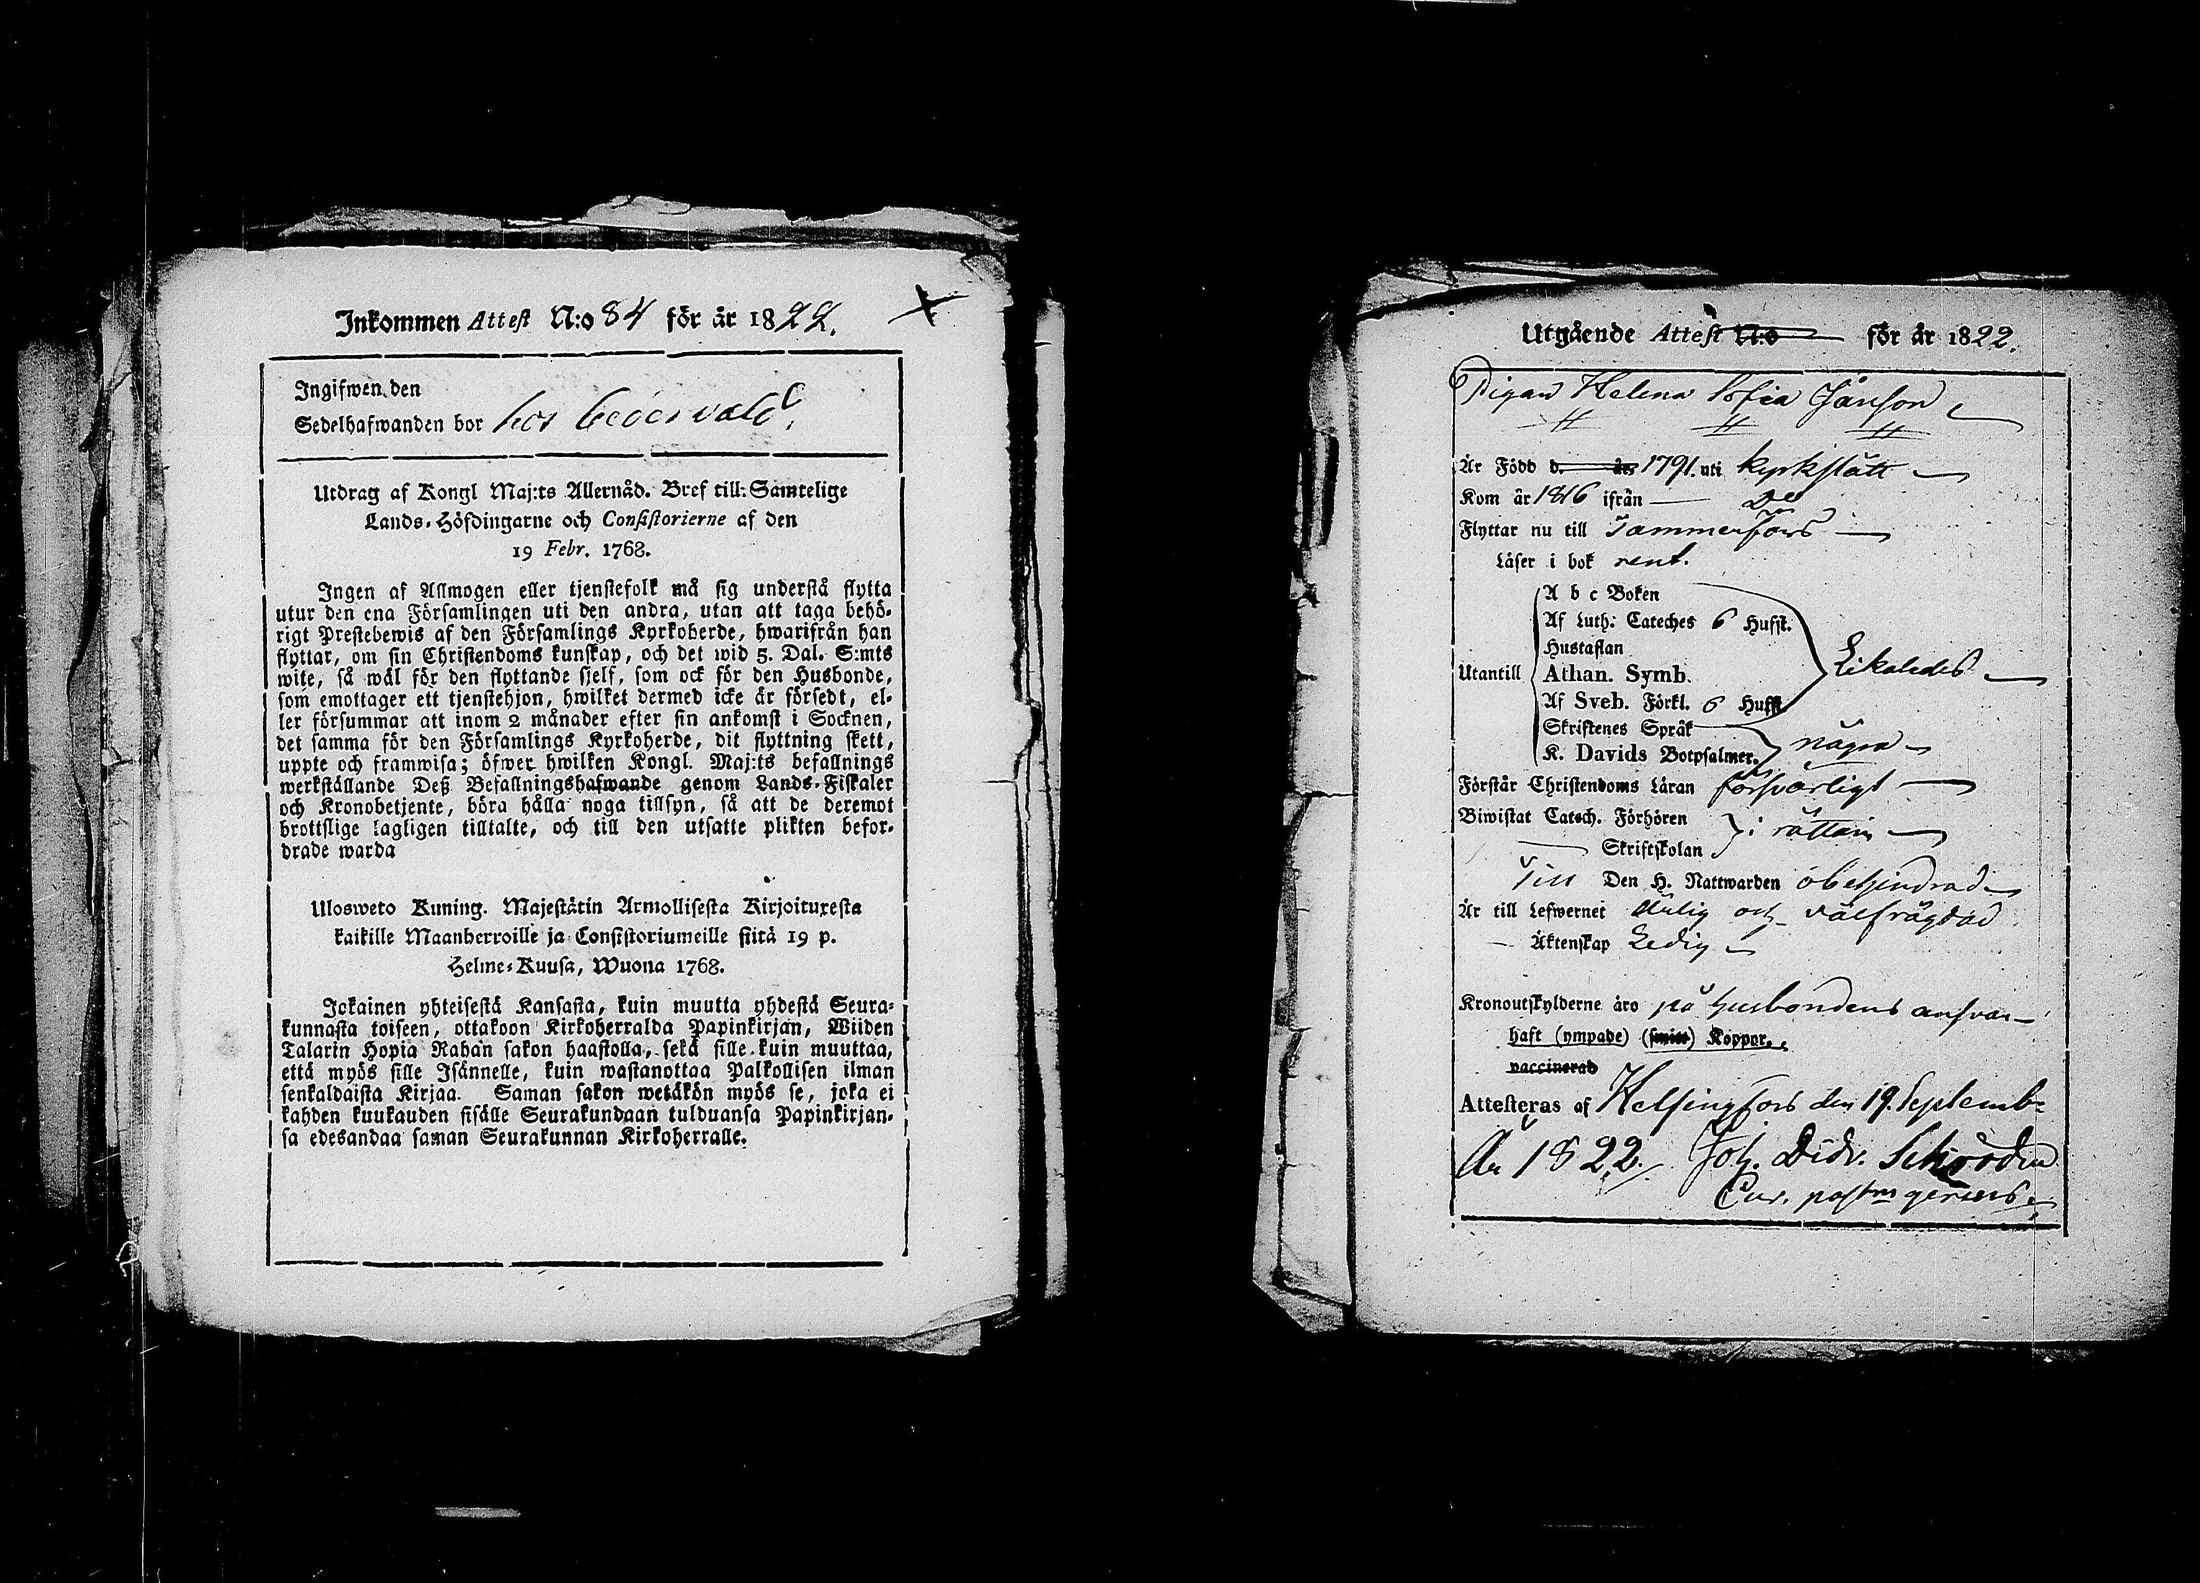 Inkommen Attest N:o 84 för år 1822.
Ingifwen den
Sedelhafwanden bor hos
Utdrag af Kongl Maj:ts Allernåd. Bref till Samtelige
Lands-Höfdingarne och Consistorierne af den
19 Febr. 1768.
Ingen af Allmogen eller tjenstefolk må sig understå flytta
utur den ena Församlingen uti den andra, utan att taga behö-
rigt Prestebewis af den Församlings Kyrkoherde, hwarifrån han
flyttar, om sin Christendoms kunskap, och det wid 5. Dal. S:mts
wite, så wäl för den flyttande sjelf, som ock för den Husbonde,
som emottager ett tjenstehjon, hwilket dermed icke är försedt, el-
ler försummar att inom 2 månader efter sin ankomst i Socknen,
det samma för den Församlings Kyrkoherde, dit flyttning skett,
uppte och framwisa; öfwer hwilken Kongl. Maj:ts befallnings
werkställande Deß Befallningshafwande genom Lands-Fiskaler
och Kronobetjente, böra hålla noga tillsyn, så att de deremot
brottslige lagligen tilltalte, och till den utsatte plikten befor-
drade warda
Ulosweto Kuning. Majestätin Armollisesta Kirjoituxesta
kaikille Maanherroille ja Consistoriumeille siitä 19 p.
Helme-Kuusa, Wuona 1768.
Jokainen yhteisestä Kansasta, kuin muutta yhdestä Seura-
kunnasta toiseen, ottakoon Kirkoherralda Papinkirjan, Wiiden
Talarin Hopia Rahan sakon haastolla, sekä sille kuin muuttaa,
että myös sille Isännelle, kuin wastanottaa Palkollisen ilman
senkaldaista Kirjaa. Saman sakon wetäkön myös se, joka ei
kahden kuukauden sisälle Seurakundaan tulduansa Papinkirjan-
sa edesandaa saman Seurakunnan Kirkoherralle.
Utgående Attest N:o för år 1822.
Pigan Helena Sofia Janson
Är Född d. år 1791. uti Kyrkslätt
Kom år 1816 ifrån Do
Flyttar nu till Tammerfors
Läser i bok rent.
A b c Boken
Af Luth: Cateches 6 Hufst.
Hustaflan
Utantill Athan. Symb. Likaledes
Af Sveb. Förkl. 6 Hufst
Skriftenes Språk
K. Davids Botpsalmer. några
Förstår Christendoms Läran försvarligt
Biwistat Catech. Förhören
Skriftskolan i rättan
Till Den H. Nattwarden obehindrad
Är till Lefwernet ärlig och välfrägdad
Äktenskap Ledig
Kronoutskylderne äro på husbondens ansvar
haft (ympade) (smitt) Koppor.
vaccinerad
Attesteras af Helsingfors den 19. Septembr
År 1822. Joh. Didr.
Cur. past:is gerens